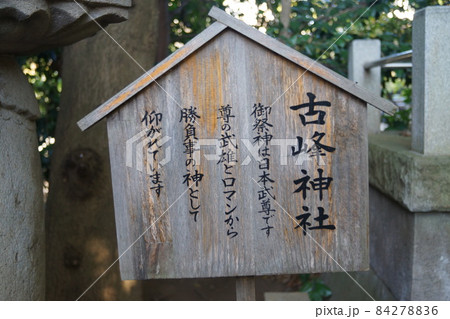 古峰神社
御祭神は日本武尊です
尊の武雄とロマンから
勝負事の神として
仰がれています
PIXTA
pixta.jp - 84278836